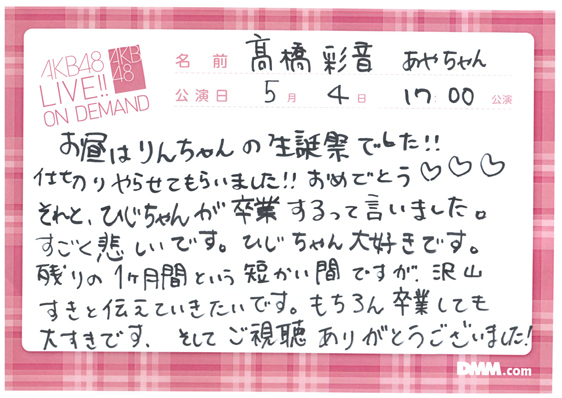 AKB48
LIVE!!
ON DEMAND
AKB
48
名前 髙橋彩音 あやちゃん
公演日 5月 4日 17:00 公演
お昼はりんちゃんの生誕祭でした!!
仕切りやらせてもらいました!! おめでとう♡♡♡
それと、ひじちゃんが卒業するって言いました。
すごく悲しいです。ひじちゃん大好きです。
残りの1ヶ月間という短かい間ですが、沢山
すきと伝えていきたいです。もちろん卒業しても
大すきです、そしてご視聴ありがとうございました!
DMM.com